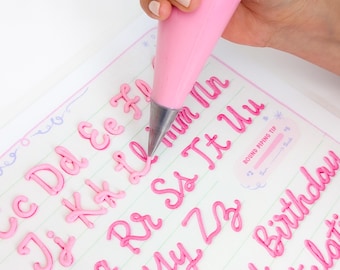 Cc Dd Ee Ff Ll Mm Nn
Jj Kk
Rr Ss Tt Uu
Yy Zz
BOXING PIPING TIP
Birthday